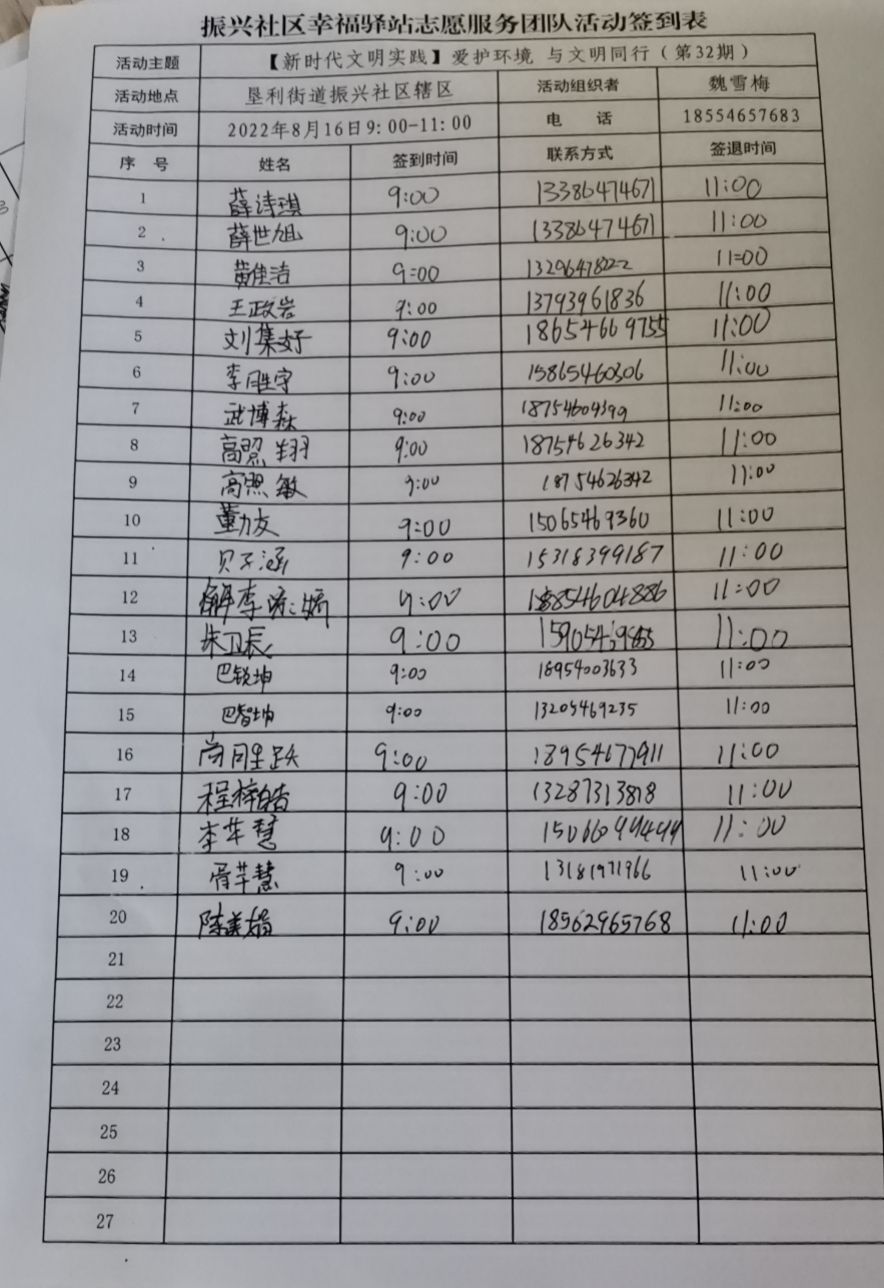 振兴社区幸福驿站志愿服务团队活动签到表
活动主题 【新时代文明实践】爱护环境 与文明同行（第32期）
活动地点 垦利街道振兴社区辖区 活动组织者 魏雪梅
活动时间 2022年8月16日9:00-11:00 电 话 18554657683
序 号 姓名 签到时间 联系方式 签退时间
1 薛诗琪 9:00 13386474671 11:00
2 薛世旭 9:00 13386474671 11:00
3 黄佳洁 9:00 11:00
4 王政岩 9:00 13793961836 11:00
5 刘集好 9:00 18654669755 11:00
6 李胜宇 9:00 15865460306 11:00
7 武博森 9:00 18754604399 11:00
8 高翌翔 9:00 18754626342 11:00
9 高照敏 9:00 18754626342 11:00
10 董力友 9:00 15065469360 11:00
11 贝子涵 9:00 15318399187 11:00
12 9:00 11:00
13 朱卫辰 9:00 11:00
14 巴锐坤 9:00 18954003633 11:00
15 巴智坤 9:00 13205469235 11:00
16 尚同生跃 9:00 18954677911 11:00
17 程梓皓 9:00 13287313818 11:00
18 李芊慧 9:00 15066094444 11:00
19 胥芊慧 9:00 13181971966 11:00
20 陈美娟 9:00 18562965768 11:00
21
22
23
24
25
26
27